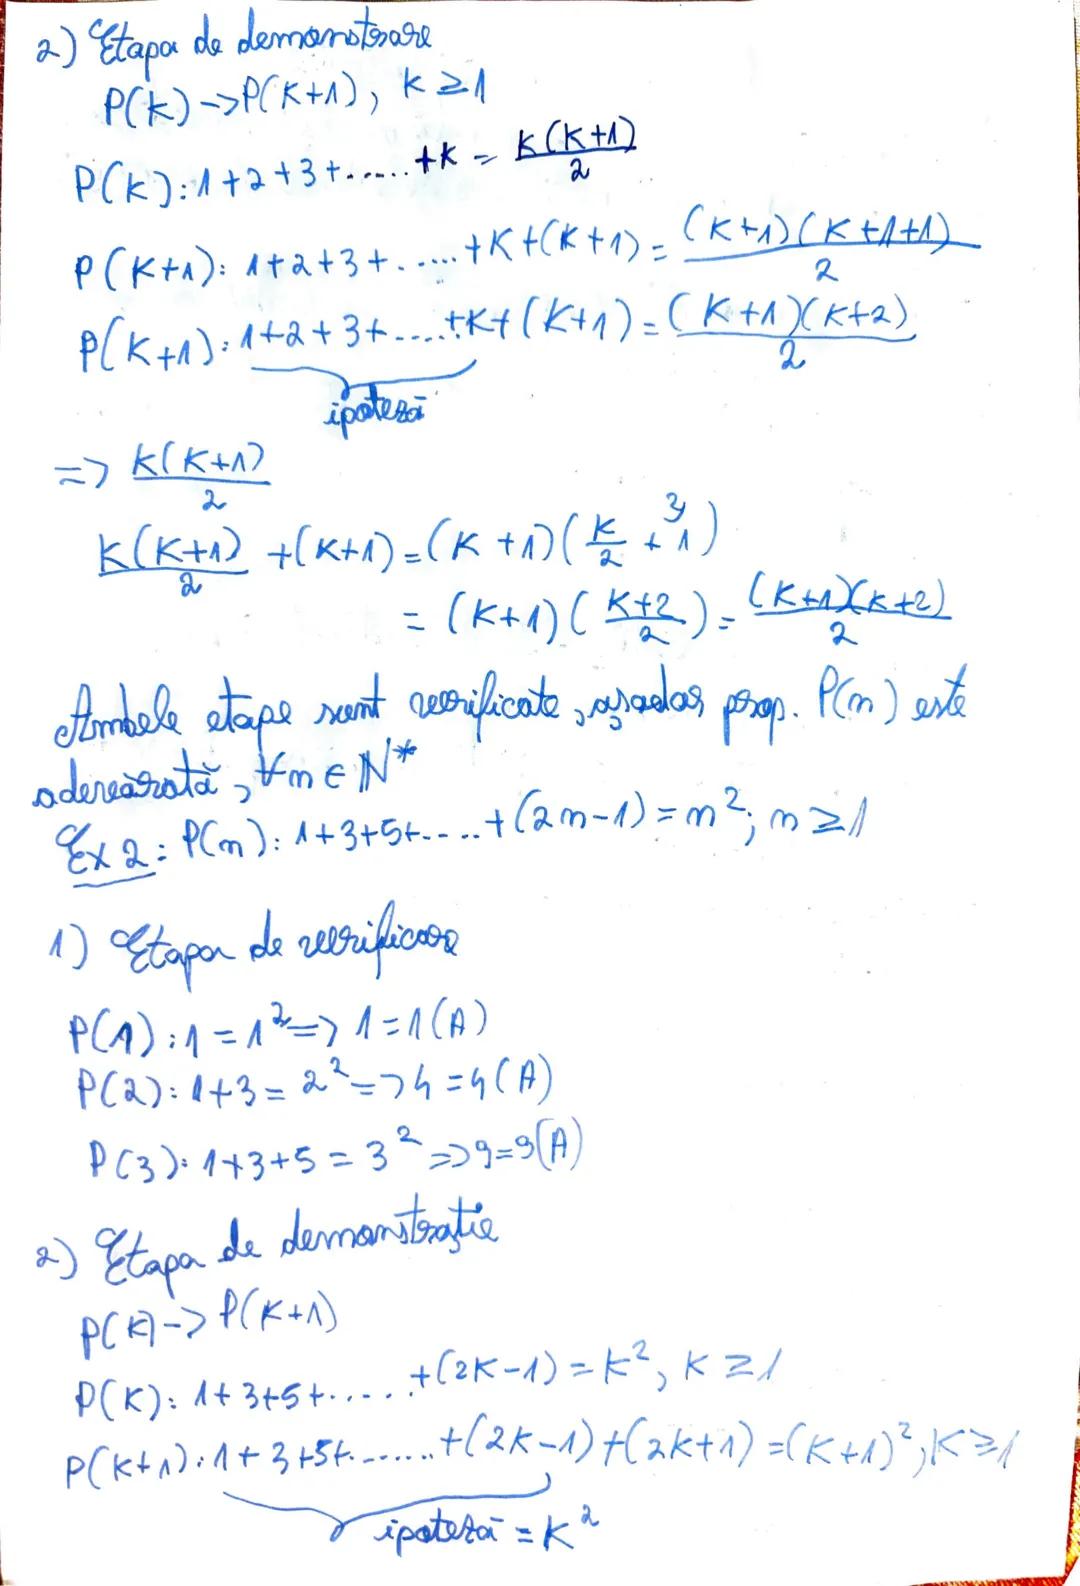 2) Etapa de demonstrare
P(k) -> P(k+1), k ≥ 1
P(k): 1+2+3+......+k = k(k+1)/2
P(k+1): 1+2+3+......+k+(k+1) = (k+1)(k+1+1)/2
P(k+1): 1+2+3+......+k+(k+1) = (k+1)(k+2)/2
ipoteză
=> k(k+1)/2
k(k+1)/2 +(k+1) = (k+1)(k/2 + 1)
= (k+1)(k+2/2) = (k+1)(k+2)/2
Ambele etape sunt verificate, așadar prop. P(n) este
adevărată, ∀n ∈ N*
Ex 2: P(n): 1+3+5+.....+(2n-1) = n²; n ≥ 1
1) Etapa de verificare
P(1): 1 = 1² => 1=1 (A)
P(2): 1+3 = 2² => 4=4 (A)
P(3): 1+3+5 = 3² => 9=9 (A)
2) Etapa de demonstrație
P(k) -> P(k+1)
P(k): 1+3+5+.....+(2k-1) = k², k ≥ 1
P(k+1): 1+3+5+.......+(2k-1)+(2k+1) = (k+1)², k ≥ 1
ipoteză = k²